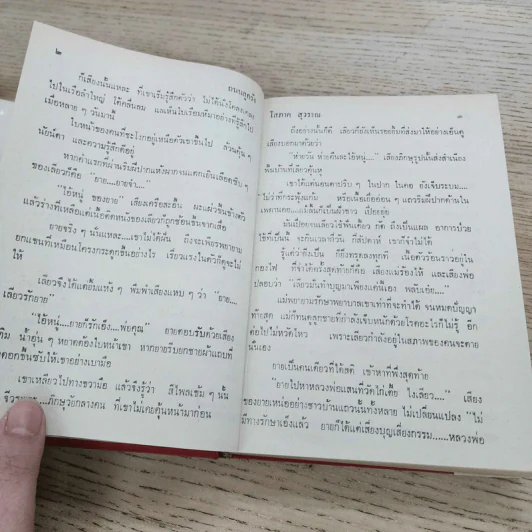 ๒
ถนนลูกรัง
ก็เสียงนั้นแหละ ที่เขาเริ่มรู้สึกตัวว่า ไม่ได้
ไปในเรือลำใหญ่ โต้คลื่นลม แลเห็นใบเรือ
เมื่อหลาย ๆ วันมานี้
ใบหน้าของคนที่ชะโงกอยู่เหนือตัวเขาขึ้นไป
นัยน์ตา และความรู้สึกดีอยู่
หากคำแรกที่ผ่านริมฝีปากแห้งผากจนแตกเป็นเลือดซิบ ๆ
ของเลี้ยวก็คือ “ยาย....ยายจ๋า....”
“ไอ้หนู ของยาย” เสียงเครือสะอื้น
แล้วร่างที่เหลือแต่เนื้อติดหนังของเลี้ยวก็ถูกช้อนขึ้นจากเสื่อ
ยายจริง ๆ นั่นแหละ....เขาไม่ได้ฝัน ถึงจะเพียรพยายาม
ยกแขนที่เหมือนโครงกระดูกขึ้นอย่างไร เรี่ยวแรงในตัวก็ดูจะไม่
ให้
เลี้ยวจึงได้แต่ยิ้มแห้ง ๆ พึมพำเสียงแหบ ๆ ว่า “ยาย....
เลี้ยวรักยาย”
“ไอ้หนู....ยายก็รักเอ็ง....พ่อคุณ” ยายตอบรับด้วยเสียง
น้ำอุ่น ๆ หยาดต้องใบหน้าเขา หากยายรีบยกชายผ้าแถบที่
ดอกขึ้นซับให้เขาอย่างเบามือ
เขาเหลียวไปทางขวามือ แล้วจึงรู้ว่า สีไพลเข้ม ๆ นั้น
ภิกษุวัยกลางคน ที่เขาไม่เคยคุ้นหน้ามาก่อน
โสภาค สุวรรณ
๓
ถึงอย่างนั้นก็ดี เลี้ยวก็ยังเห็นรอยยิ้มที่ส่งมาให้อย่างเอ็นดู
เสียงบอกมาด้วยว่า
“หายวัน หายคืนละไอ้หนู...” เสียงภิกษุรูปนั้นส่งสำเนียง
พื้นบ้านที่เลี้ยวคุ้นหู
เขาได้แต่นอนตาปริบ ๆ ในปาก ในคอ ยังเจ็บระบม....
“ไม่ว่าที่กระพุ้งแก้ม หรือเนื้อเยื่ออ่อน ๆ แถวริมฝีปากด้านใน
เพดานคอ....แม้ลิ้นก็เป็นฝ้าขาว เปื่อยยุ่ย
มันเปื่อยจนเลี้ยวใช้ฟันเคี้ยว กัด ถึงเป็นแผล อาการป่วย
ใช้ที่เป็นนี่ จะกี่เวลากี่วัน กี่สัปดาห์ เขาก็จำไม่ได้
รู้แต่ว่าถึงเป็น ก็ยังทรุดลงทุกที เนื้อตัวร้อนราวอยู่ใน
กองไฟ ที่จำได้ครั้งสุดท้ายก็คือ เสียงแม่ร้องไห้ และเสียงพ่อ
ปลอบว่า “เลี้ยวมันทำบุญมาเพียงแค่นี้เอง พลับเอ๋ย....”
แม่พยายามรักษาพยาบาลเขาเท่าที่จะทำได้ จนหมดปัญญา
ท้ายสุด แม่ก็ทนดูลูกชายที่กำลังเจ็บหนักด้วยโรคอะไรก็ไม่รู้ อีก
ต่อไปไม่หวัดไหว เพราะเลี้ยวกำลังอยู่ในสภาพของคนจะตาย
นี่เอง
ยายเป็นคนเดียวที่ได้สติ เข้าหาที่พึ่งสุดท้าย
“ยายไปหาหลวงพ่อแสนที่วัดไก่เตี้ย ไงเลี้ยว....” เสียง
ของยายเหน่ออย่างชาวบ้านแถวนั้นทั้งหลาย ไม่เปลี่ยนแปลง “ไม่
มีทางรักษาเองแล้ว ยายก็ได้แต่เสี่ยงบุญเสี่ยงกรรม......หลวงพ่อ